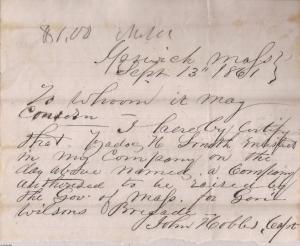 $1.00
Mass
Sept 13th 1861
To Whom it May
Concern I hereby Certify
that H Smith Enlisted
in my Company on the
day above named, a Company
authorised to be raised by
the Gov of Mass. for Genl
Wilsons Brigade
John Hobbs, Capt